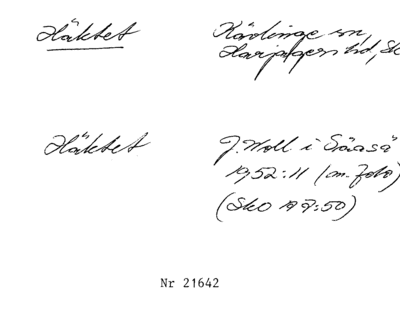 Häktet
Kävlinge sn,
Harjagers hd, Sk
Häktet
J. Moll i Svaså
1952:11 (m. foto)
(Sko 1979:50)
Nr 21642